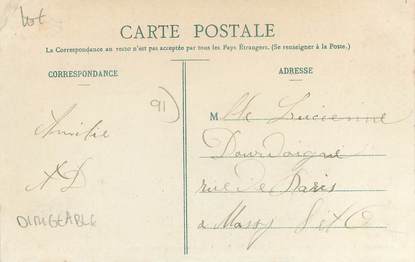 Lot
CARTE POSTALE
La Correspondance au recto n'est pas acceptée par tous les Pays Étrangers. (Se renseigner à la Poste.)
CORRESPONDANCE
ADRESSE
91)
Mlle Lucienne
Amitié
Dourdoigne
AD
rue de Paris
DIRIGEABLE
à Massy S et O